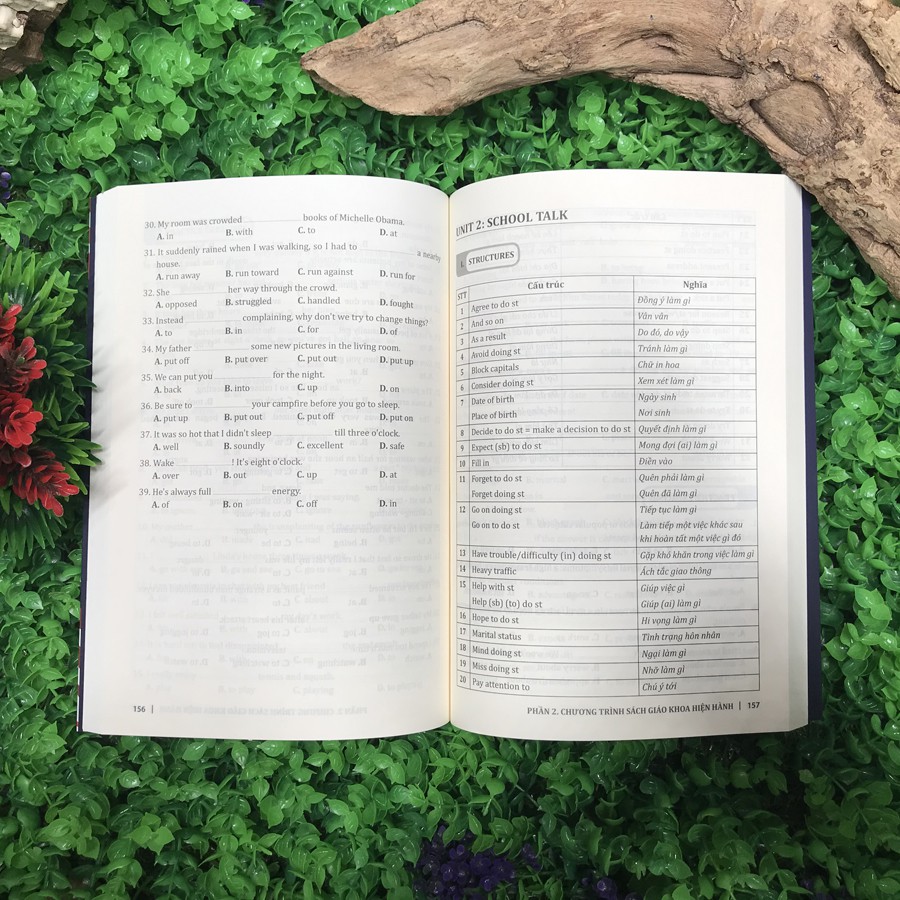 30. My room was crowded ____________ books of Michelle Obama.
A. in B. with C. to D. at
31. It suddenly rained when I was walking, so I had to ____________ a nearby
house.
A. run away B. run toward C. run against D. run for
32. She ____________ her way through the crowd.
A. opposed B. struggled C. handled D. fought
33. Instead ____________ complaining, why don't we try to change things?
A. to B. in C. for D. of
34. My father ____________ some new pictures in the living room.
A. put off B. put over C. put out D. put up
35. We can put you ____________ for the night.
A. back B. into C. up D. on
36. Be sure to ____________ your campfire before you go to sleep.
A. put up B. put out C. put off D. put on
37. It was so hot that I didn't sleep ____________ till three o'clock.
A. well B. soundly C. excellent D. safe
38. Wake ____________! It's eight o'clock.
A. over B. out C. up D. at
39. He's always full ____________ energy.
A. of B. on C. off D. in
156 |
UNIT 2: SCHOOL TALK
I. STRUCTURES
STT Cấu trúc Nghĩa
1 Agree to do st Đồng ý làm gì
2 And so on Vân vân
3 As a result Do đó, do vậy
4 Avoid doing st Tránh làm gì
5 Block capitals Chữ in hoa
6 Consider doing st Xem xét làm gì
7 Date of birth Ngày sinh
Place of birth Nơi sinh
8 Decide to do st = make a decision to do st Quyết định làm gì
9 Expect (sb) to do st Mong đợi (ai) làm gì
10 Fill in Điền vào
11 Forget to do st Quên phải làm gì
Forget doing st Quên đã làm gì
12 Go on doing st Tiếp tục làm gì
Go on to do st Làm tiếp một việc khác sau
khi hoàn tất một việc gì đó
13 Have trouble/difficulty (in) doing st Gặp khó khăn trong việc làm gì
14 Heavy traffic Ách tắc giao thông
15 Help with st Giúp việc gì
Help (sb) (to) do st Giúp (ai) làm gì
16 Hope to do st Hi vọng làm gì
17 Marital status Tình trạng hôn nhân
18 Mind doing st Ngại làm gì
19 Miss doing st Nhỡ làm gì
20 Pay attention to Chú ý tới
PHẦN 2. CHƯƠNG TRÌNH SÁCH GIÁO KHOA HIỆN HÀNH | 157